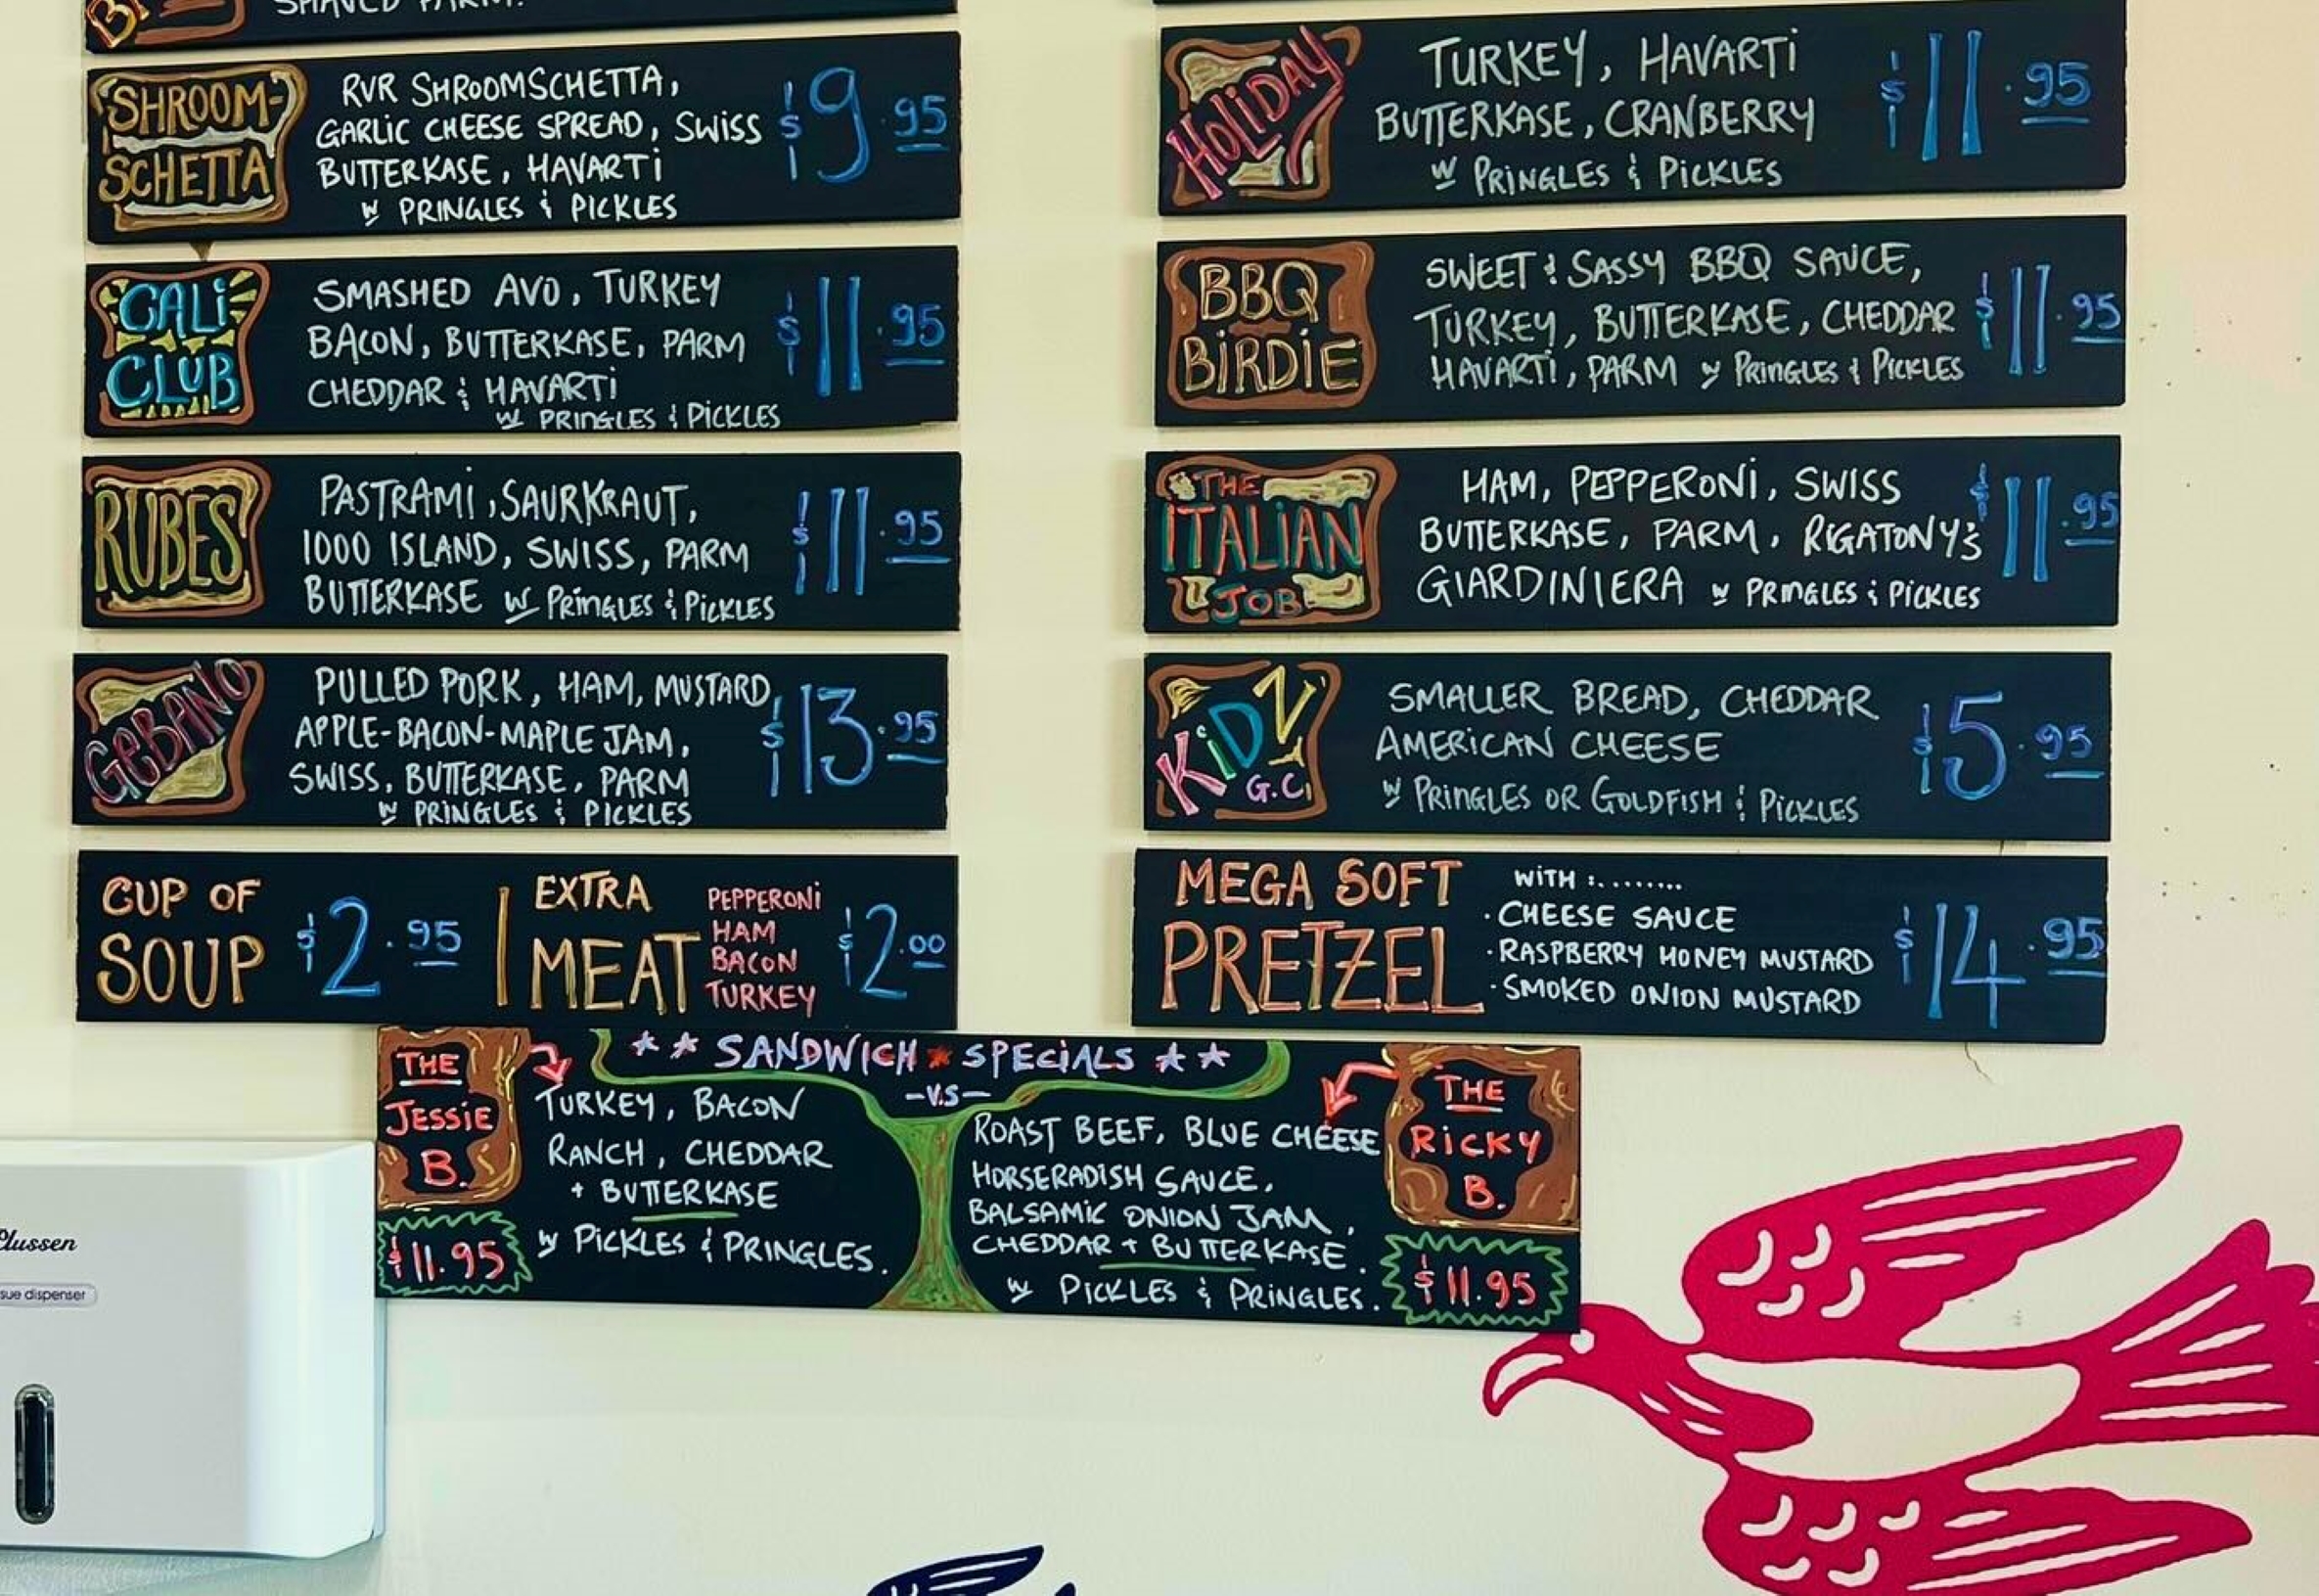 SHAVED PARM.
SHROOM-
SCHETTA
RVR SHROOMSCHETTA,
GARLIC CHEESE SPREAD, SWISS
BUTTERKASE, HAVARTI
W PRINGLES & PICKLES
$9.95
CALI
CLUB
SMASHED AVO, TURKEY
BACON, BUTTERKASE, PARM
CHEDDAR & HAVARTI
W PRINGLES & PICKLES
$11.95
RUBES
PASTRAMI, SAURKRAUT,
1000 ISLAND, SWISS, PARM
BUTTERKASE W PRINGLES & PICKLES
$11.95
GEBANO
PULLED PORK, HAM, MUSTARD,
APPLE-BACON-MAPLE JAM,
SWISS, BUTTERKASE, PARM
W PRINGLES & PICKLES
$13.95
CUP OF
SOUP
$2.95
EXTRA
MEAT
PEPPERONI
HAM
BACON
TURKEY
$2.00
HOLIDAY
TURKEY, HAVARTI
BUTTERKASE, CRANBERRY
W PRINGLES & PICKLES
$11.95
BBQ
BIRDIE
SWEET & SASSY BBQ SAUCE,
TURKEY, BUTTERKASE, CHEDDAR
HAVARTI, PARM W PRINGLES & PICKLES
$11.95
THE
ITALIAN
JOB
HAM, PEPPERONI, SWISS
BUTTERKASE, PARM, RIGATONY'S
GIARDINIERA W PRINGLES & PICKLES
$11.95
KIDZ
G.C.
SMALLER BREAD, CHEDDAR
AMERICAN CHEESE
W PRINGLES OR GOLDFISH & PICKLES
$5.95
MEGA SOFT
PRETZEL
WITH :........
· CHEESE SAUCE
· RASPBERRY HONEY MUSTARD
· SMOKED ONION MUSTARD
$14.95
SANDWICH SPECIALS
-V.S-
THE
JESSIE
B.
$11.95
TURKEY, BACON
RANCH, CHEDDAR
+ BUTTERKASE
W PICKLES & PRINGLES.
ROAST BEEF, BLUE CHEESE
HORSERADISH SAUCE,
BALSAMIC ONION JAM,
CHEDDAR + BUTTERKASE.
W PICKLES & PRINGLES.
THE
RICKY
B.
$11.95
lussen
sue dispenser